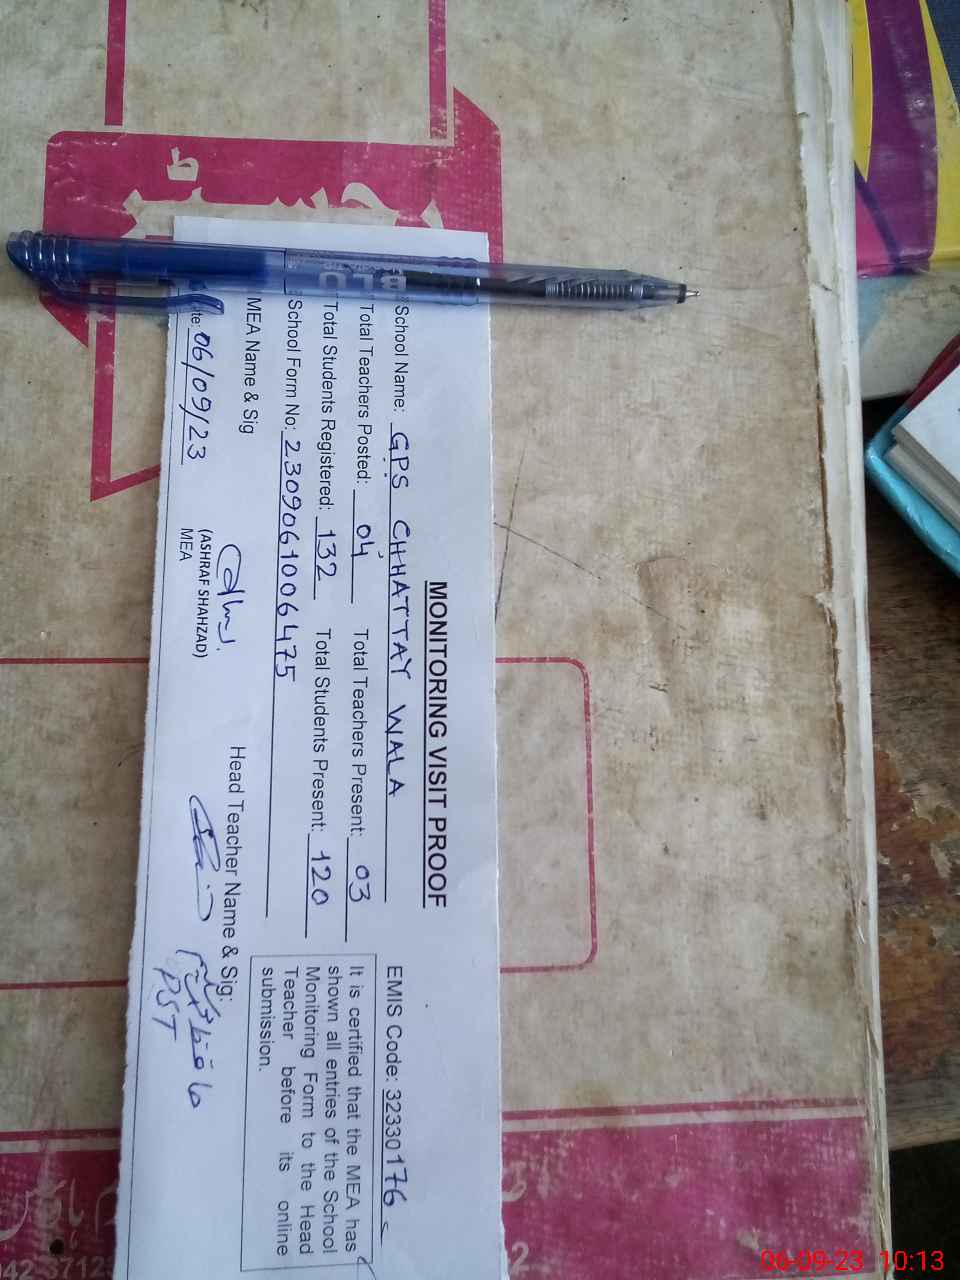 MONITORING VISIT PROOF
School Name: GPS CHHATTAY WALA EMIS Code: 32330176
Total Teachers Posted: 04 Total Teachers Present: 03
Total Students Registered: 132 Total Students Present: 120
School Form No: 2309061006475
It is certified that the MEA has
shown all entries of the School
Monitoring Form to the Head
Teacher before its online
submission.
MEA Name & Sig Head Teacher Name & Sig:
(ASHRAF SHAHZAD)
MEA
PST
te: 06/09/23
06-09-23 10:13